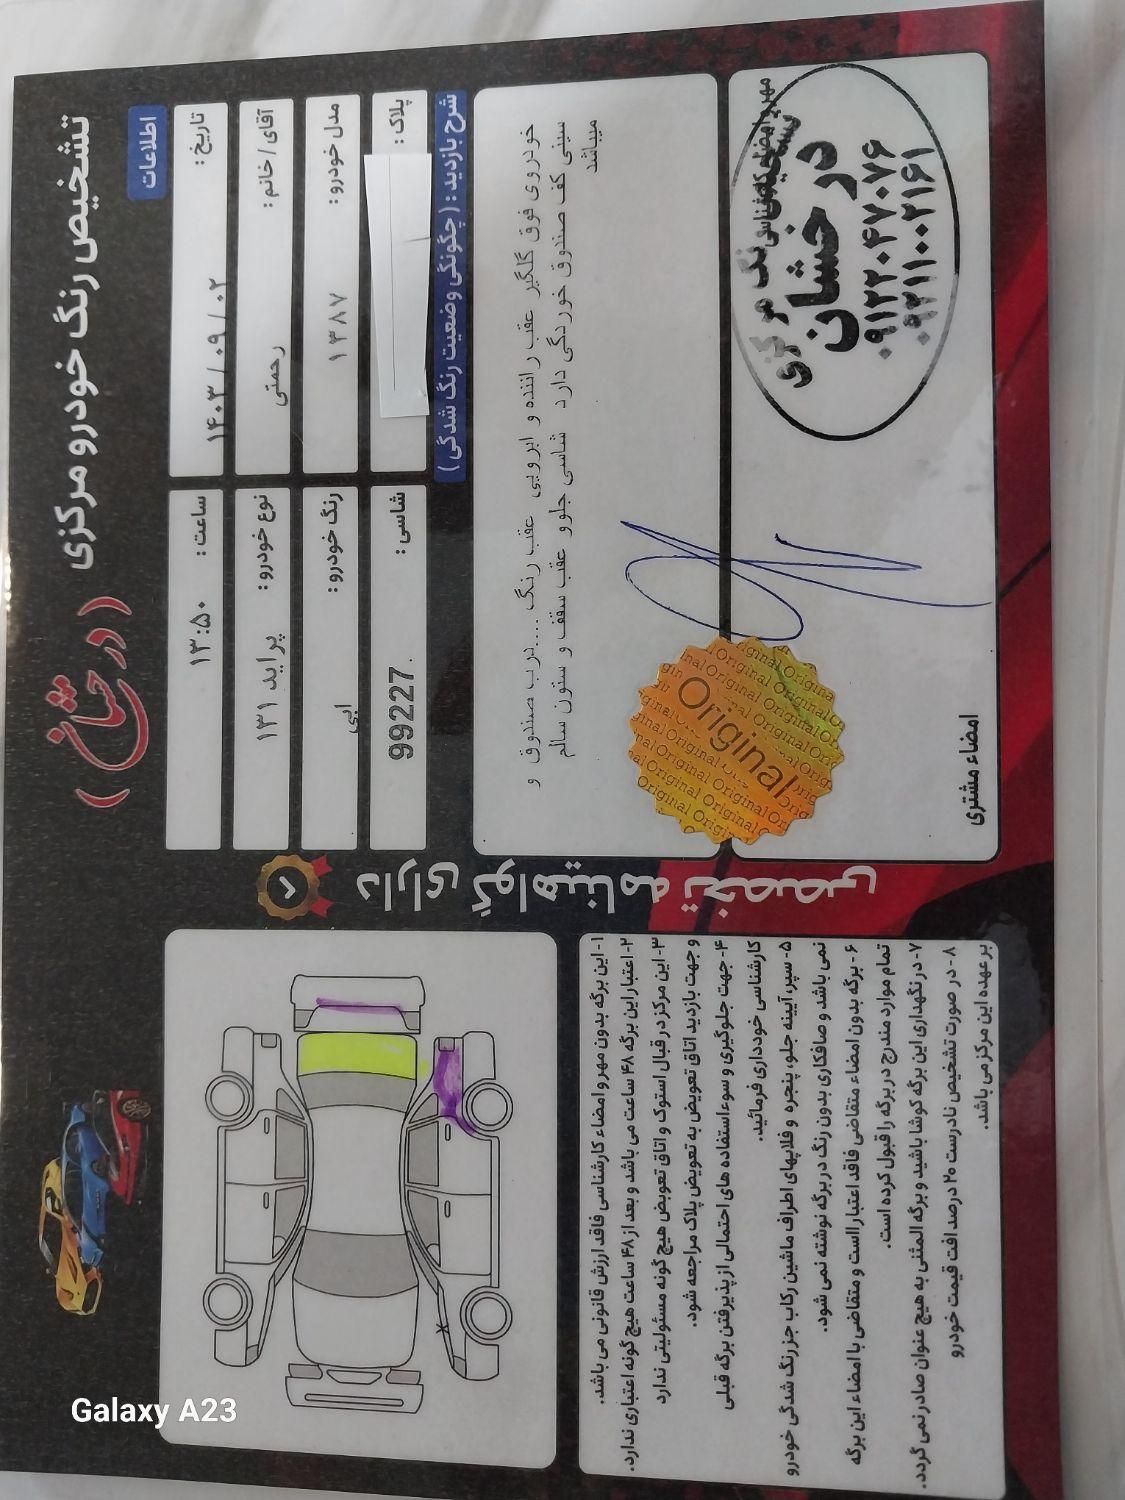 تشخیص رنگ خودرو مرکزی
( درخشان )
اطلاعات
تاریخ: ۱۴۰۳/۰۹/۰۲
ساعت: ۱۳:۵۰
آقای/خانم: رحمتی
نوع خودرو: پراید ۱۳۱
مدل خودرو: ۱۳۸۷
رنگ خودرو: ابی
پلاک:
شاسی: 99227
شرح بازدید: (چگونگی وضعیت رنگ شدگی)
خودروی فوق گلگیر عقب راننده و ابرویی عقب رنگ ....درب صندوق و
سینی کف صندوق خوردگی دارد شاسی جلوو عقب سقف و ستون سالم
میباشد
مهر و امضاء کارشناس
رنگ مرکزی
درخشان
۰۹۱۲۲۰۴۷۰۷۶
۰۹۲۱۱۰۰۲۱۶۱
Original
امضاء مشتری
دارای گواهینامه تخصصی
۱-این برگه بدون مهر و امضاء کارشناسی فاقد ارزش قانونی می باشد.
۲-اعتبار این برگه ۴۸ ساعت می باشد و بعد از ۴۸ ساعت هیچ گونه اعتباری ندارد.
۳-این مرکز در قبال استوک و اتاق تعویض هیچ گونه مسئولیتی ندارد
وجهت بازدید اتاق تعویض به تعویض پلاک مراجعه شود.
۴-جهت جلوگیری و سوءاستفاده های احتمالی از پذیرفتن برگه قبلی
کارشناسی خودداری فرمائید.
۵-سپر، آیینه جلو، پنجره و فلاپهای اطراف ماشین رکاب جز رنگ شدگی خودرو
نمی باشد و صافکاری بدون رنگ در برگه نوشته نمی شود.
۶-برگه بدون امضاء متقاضی فاقد اعتبار است و متقاضی با امضاء این برگه
تمام موارد مندرج در برگه را قبول کرده است.
۷-در نگهداری این برگه کوشا باشید و برگه المثنی به هیچ عنوان صادر نمی گردد.
۸-در صورت تشخیص نادرست ۲۰ درصد افت قیمت خودرو
بر عهده این مرکز می باشد.
Galaxy A23